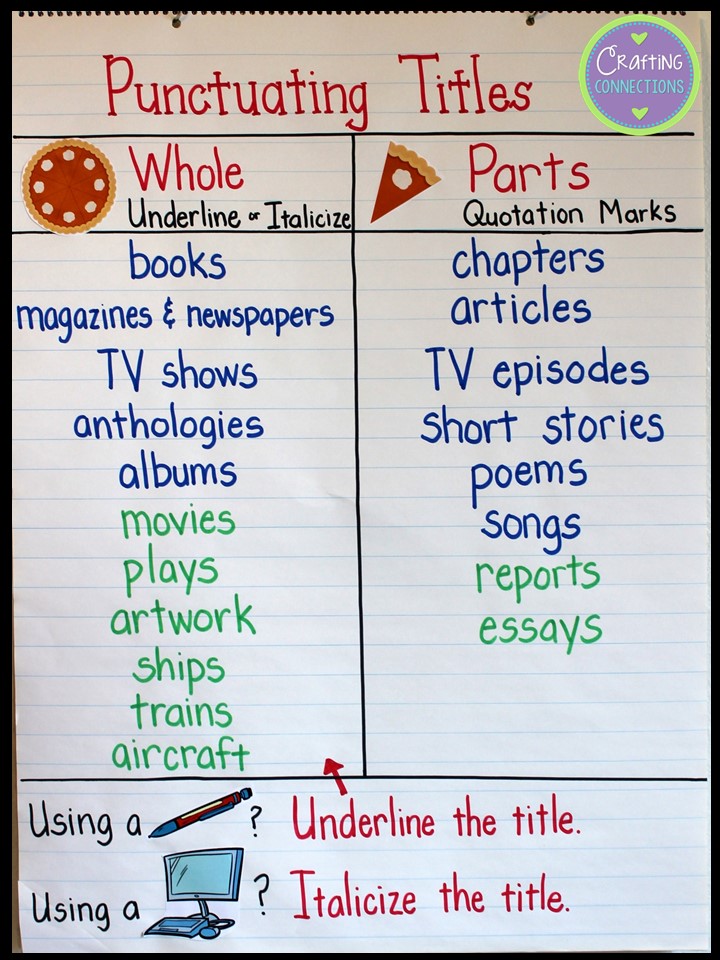 Crafting
CONNECTIONS
Punctuating Titles
Whole
Underline or Italicize
books
magazines & newspapers
TV shows
anthologies
albums
movies
plays
artwork
ships
trains
aircraft
Parts
Quotation Marks
chapters
articles
TV episodes
short stories
poems
songs
reports
essays
Using a ? Underline the title.
Using a ? Italicize the title.